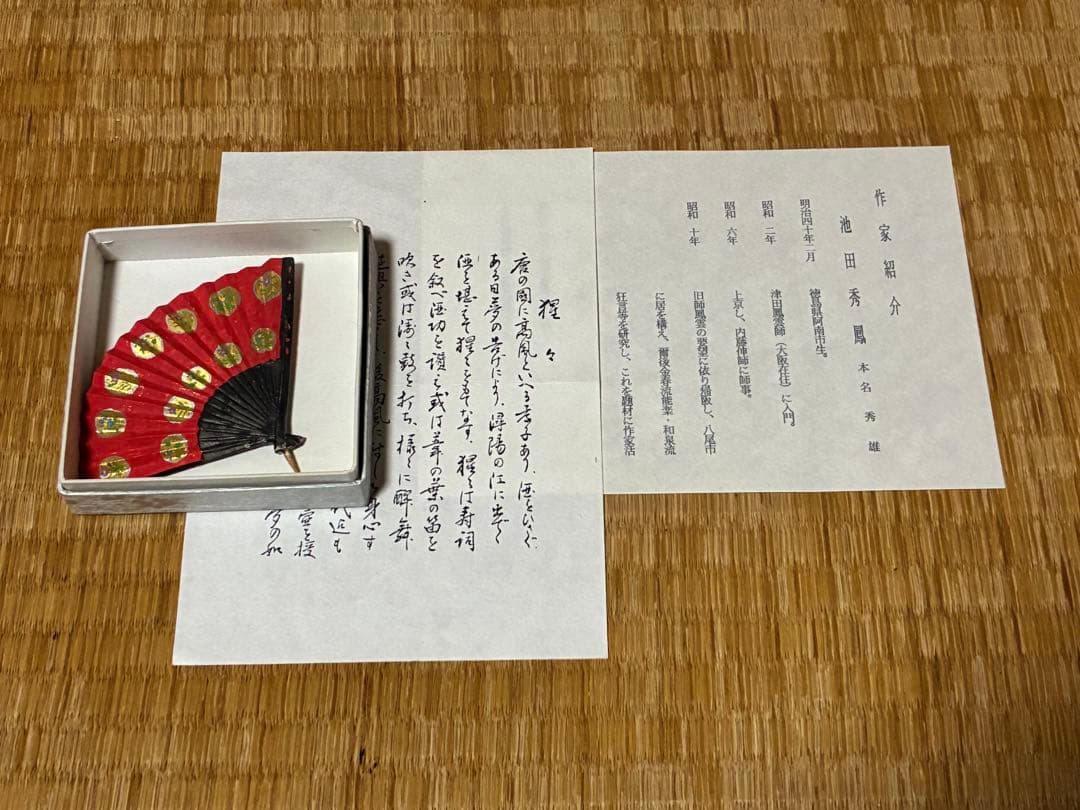 作家紹介
池田秀鳳 本名 秀雄
明治四十年二月 徳島県阿南市生。
昭和 二年 津田鳳雲師(大阪在住)に入門。
昭和 六年 上京し、内藤伸師に師事。
昭和 十年 旧師鳳雲の要望に依り帰阪し、八尾市
に居を構え、爾後金春流能楽・和泉流
狂言等を研究し、これを題材に作家活
猩々
唐の国に高風といへる孝子あり、酒をひさぐ、
ある日夢の告げにより、潯陽の江に出でて
酒を堪えて猩々をもてなす、猩々は寿詞
を叙べ酒功を讃え或は葦の葉の笛を
吹き或は鼓を打ち、様々に酔舞
高風に 身心す
代迄も
壷を授
夢の如